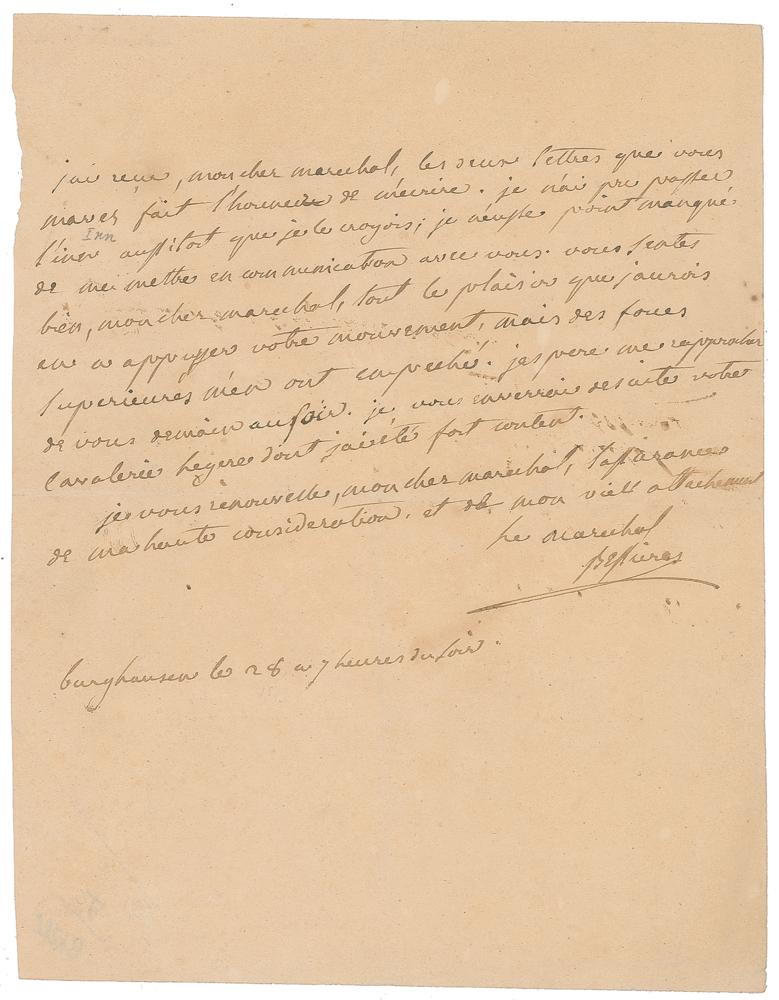 jai reçu, mon cher marechal, les deux lettres que vous
mavez fait l'honneur de m'ecrire. je n'ai pu passer
Inn
l'inn aussitost que je le croyois; je n'eusse point manqué
de me mettre en communication avec vous. vous sentes
bien, mon cher marechal, tout le plaisir que jaurois
eu a appuyer votre mouvement, mais des forces
superieures m'en ont empeché. jespere me rapprocher
de vous demain au soir. je vous enverrai desuite votre
cavalerie legere dont jai été fort content.
je vous renouvelle, mon cher marechal, l'assurance
de ma haute consideration, et de mon vieil attachement
le marechal
Bessieres
burghausen le 28 a 7 heures du soir.